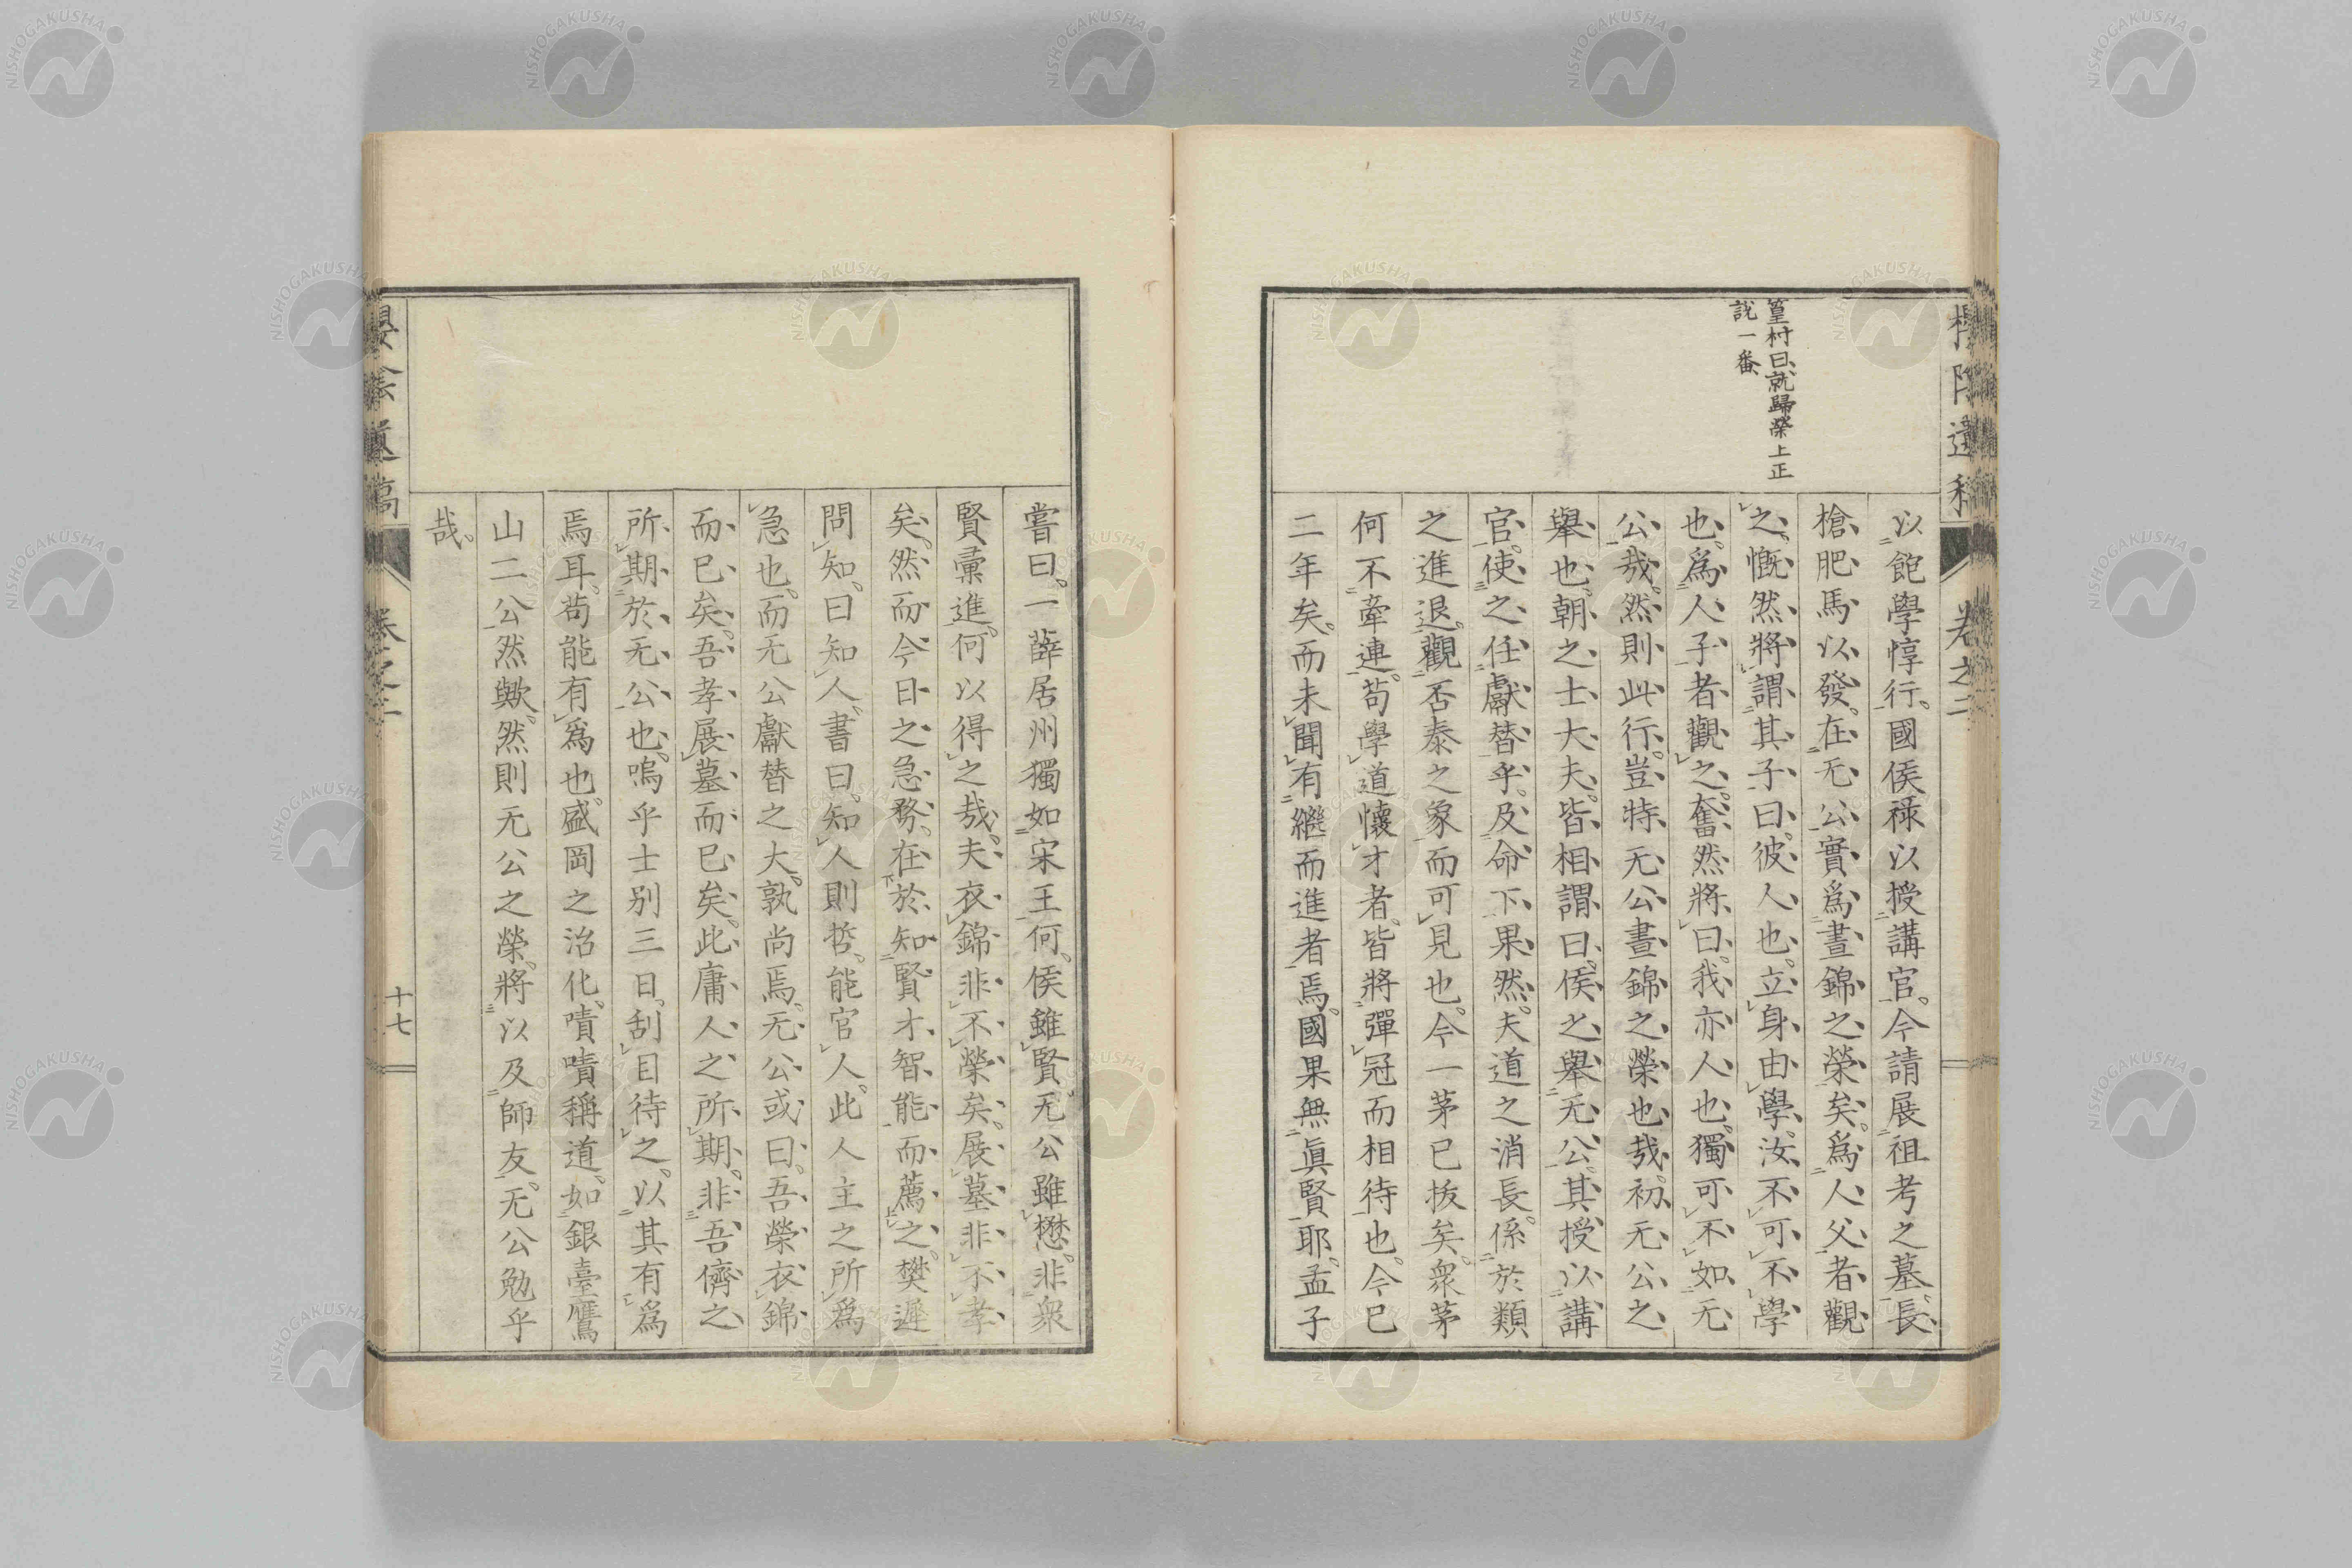 篁村曰、就歸榮上正
説一番、
以飽學惇行。國侯祿以授講官。今請展祖考之墓、長
槍肥馬以發。在无公實爲晝錦之榮矣。爲人父者觀
之。慨然將謂其子曰。彼人也。立身由學。汝不可不學
也。爲人子者觀之。奮然將曰。我亦人也。獨可不如无
公哉。然則此行。豈特无公晝錦之榮也哉。初无公之
舉也。朝之士大夫。皆相謂曰。侯之舉无公。其授以講
官。使之任獻替乎。及命下果然。夫道之消長。係於類
之進退。觀否泰之象而可見也。今一茅已拔矣。衆茅
何不牽連。苟學道懷才者。皆將彈冠而相待也。今已
二年矣。而未聞有繼而進者焉。國果無眞賢耶。孟子
嘗曰。一薛居州獨如宋王何。侯雖賢。无公雖懋。非衆
賢彙進。何以得之哉。夫衣錦非不榮矣。展墓非不孝
矣。然而今日之急務。在於知賢才智能而薦之。樊遲
問知。曰知人。書曰。知人則哲。能官人。此人主之所爲
急也。而无公獻替之大。孰尚焉。无公或曰。吾榮衣錦
而已矣。吾孝展墓而已矣。此庸人之所期。非吾儕之
所期於无公也。嗚乎士別三日。刮目待之。以其有爲
焉耳。苟能有爲也。盛岡之治化。嘖嘖稱道。如銀臺鷹
山二公然歟。然則无公之榮。將以及師友。无公勉乎
哉。
卷之二
十七